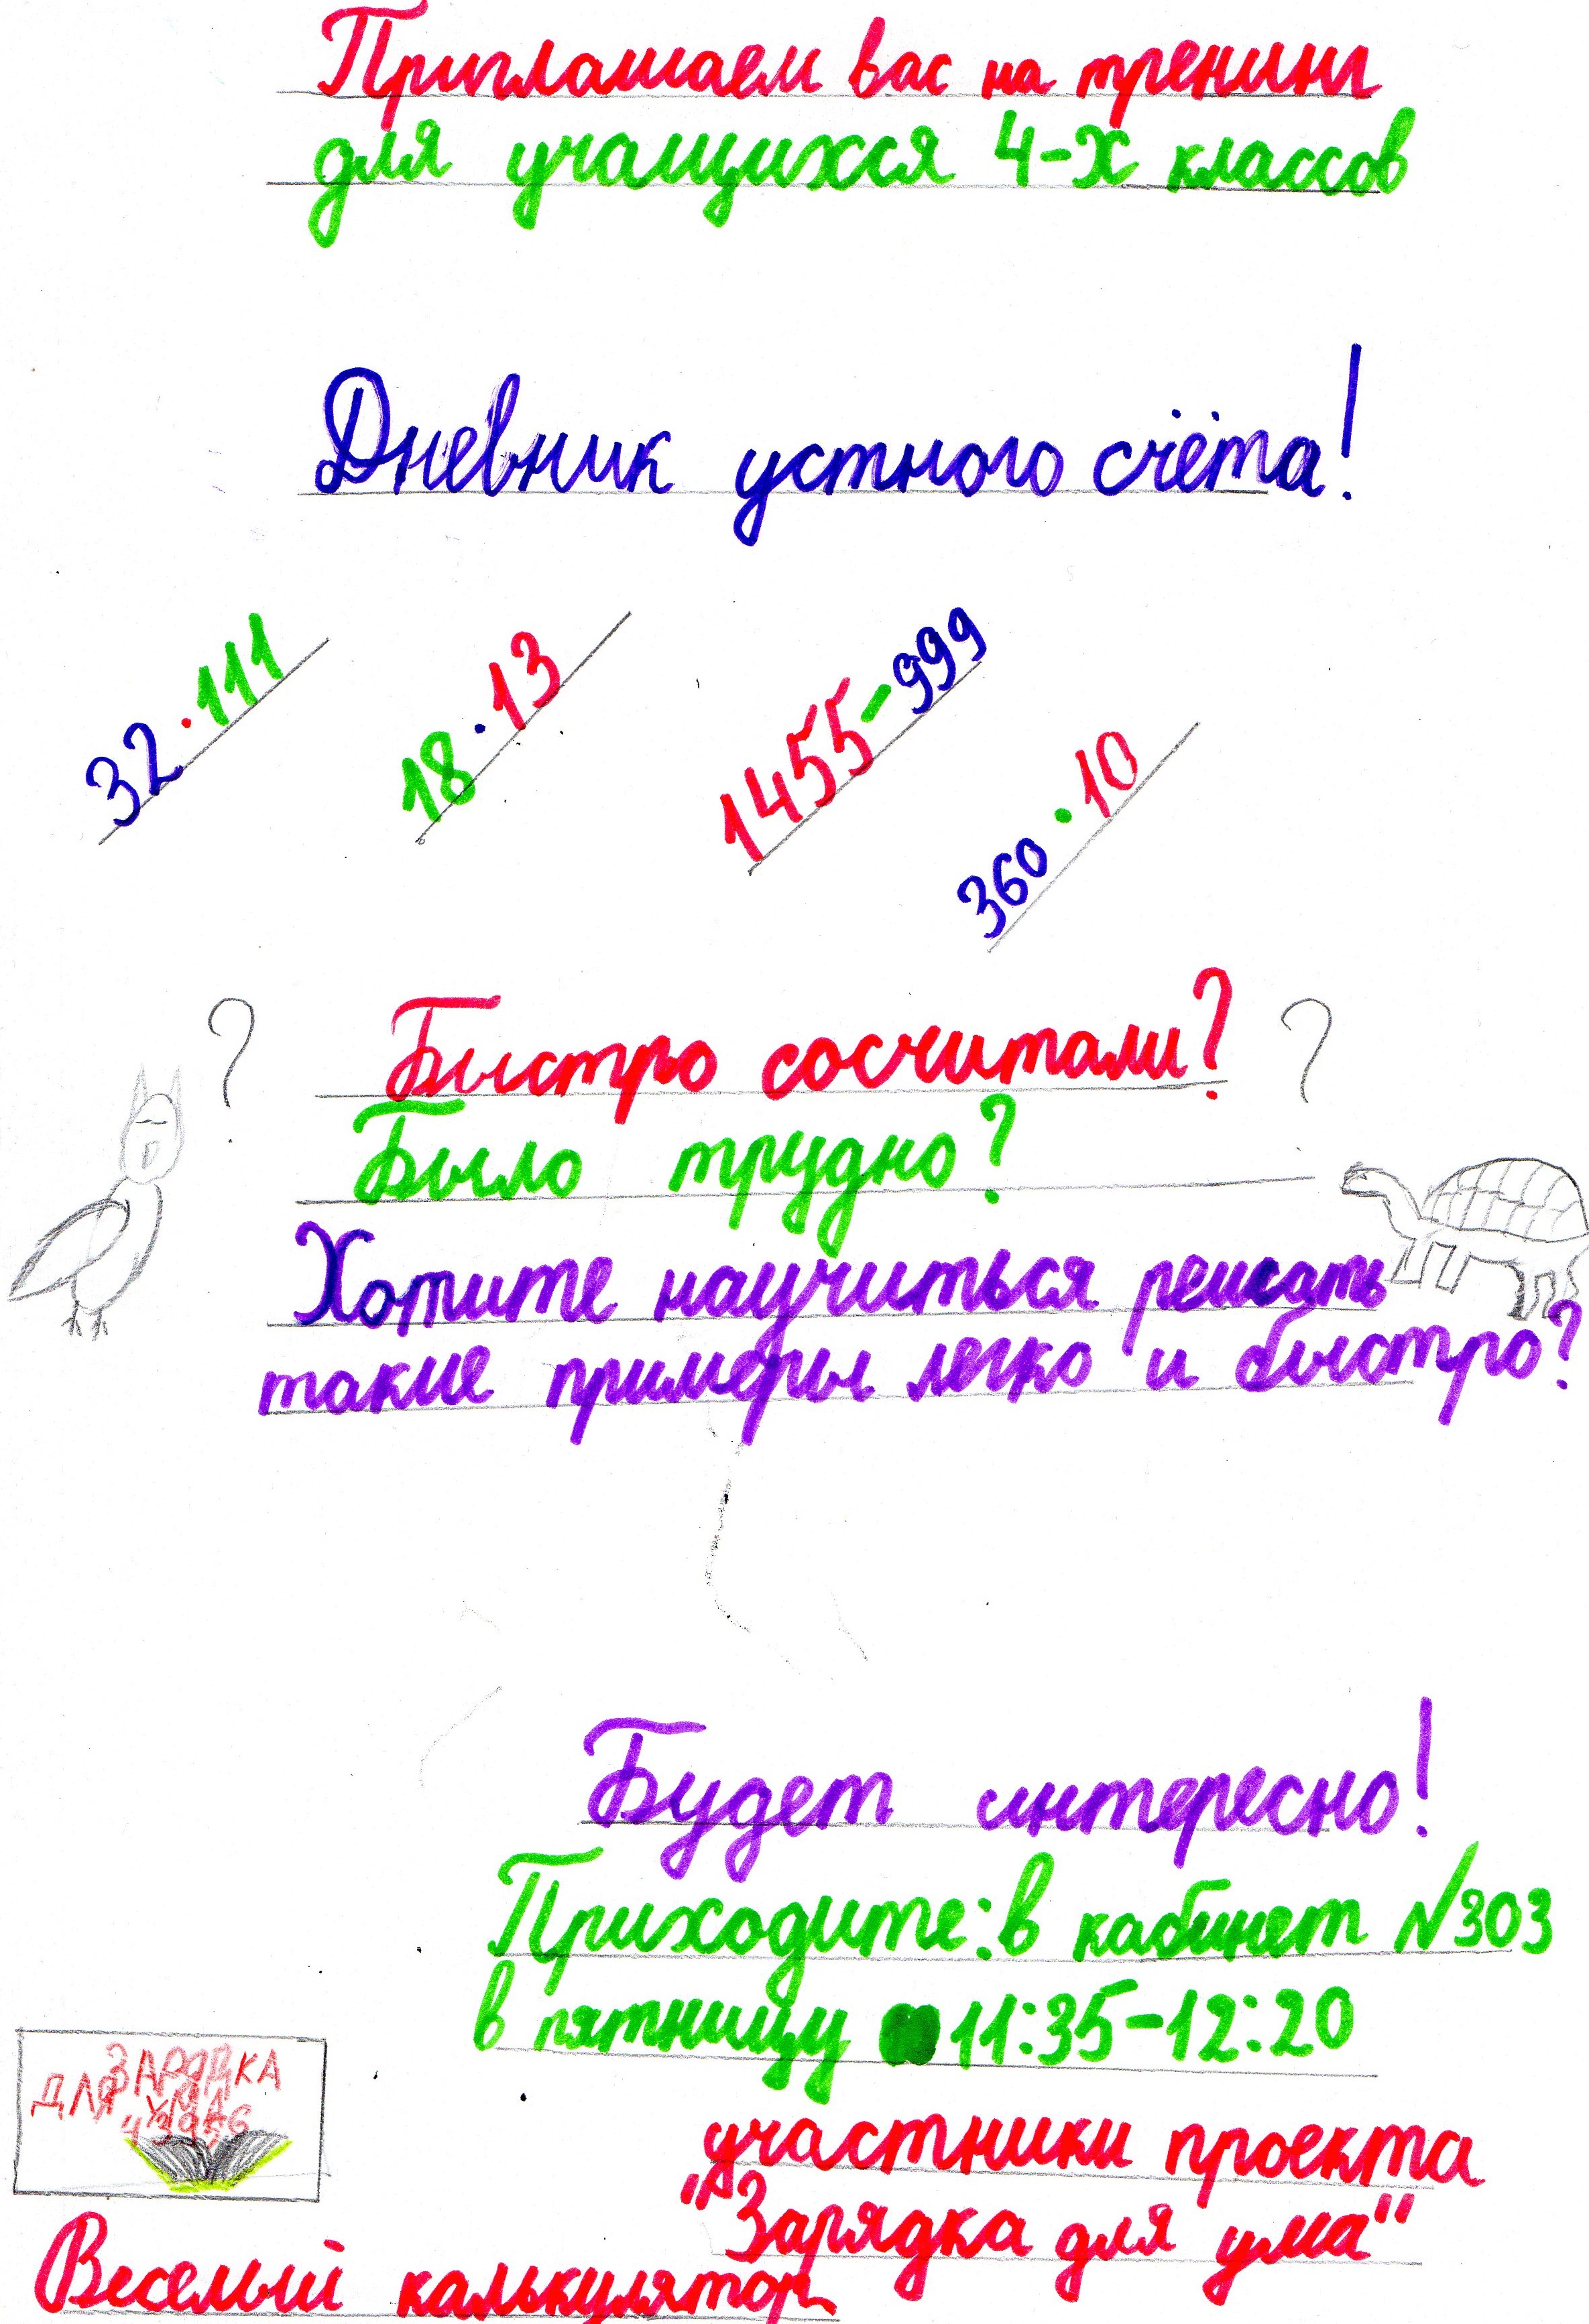 Приглашаем вас на тренинг
для учащихся 4-х классов
Дневник устного счёта!
32·111
18·13
1455-999
360·10
? Быстро сосчитали? ?
Было трудно?
Хотите научиться решать
такие примеры легко и быстро?
Будет интересно!
Приходите: в кабинет №303
в пятницу 11:35-12:20
ЗАРЯДКА
ДЛЯ УМА
участники проекта
"Зарядка для ума"
Веселый калькулятор